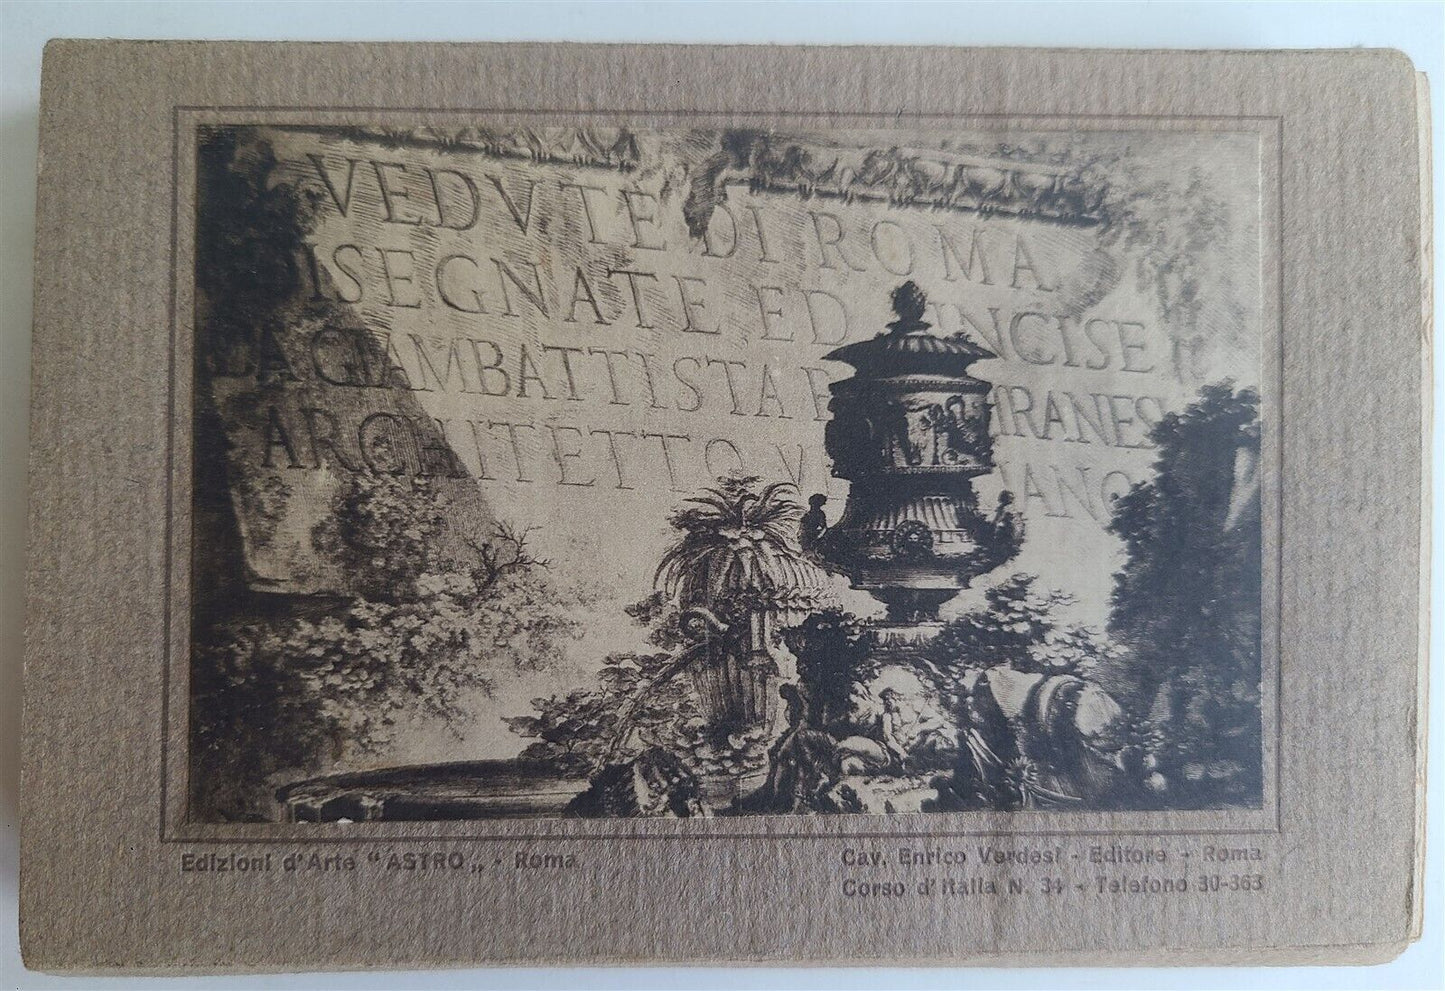 VEDVTE DI ROMA
DISEGNATE ED INCISE
DA GIAMBATTISTA PIRANESI
ARCHITETTO VE IANO
Edizioni d'Arte “ASTRO„ - Roma
Cav. Enrico Verdesi - Editore - Roma
Corso d'Italia N. 34 - Telefono 30-363